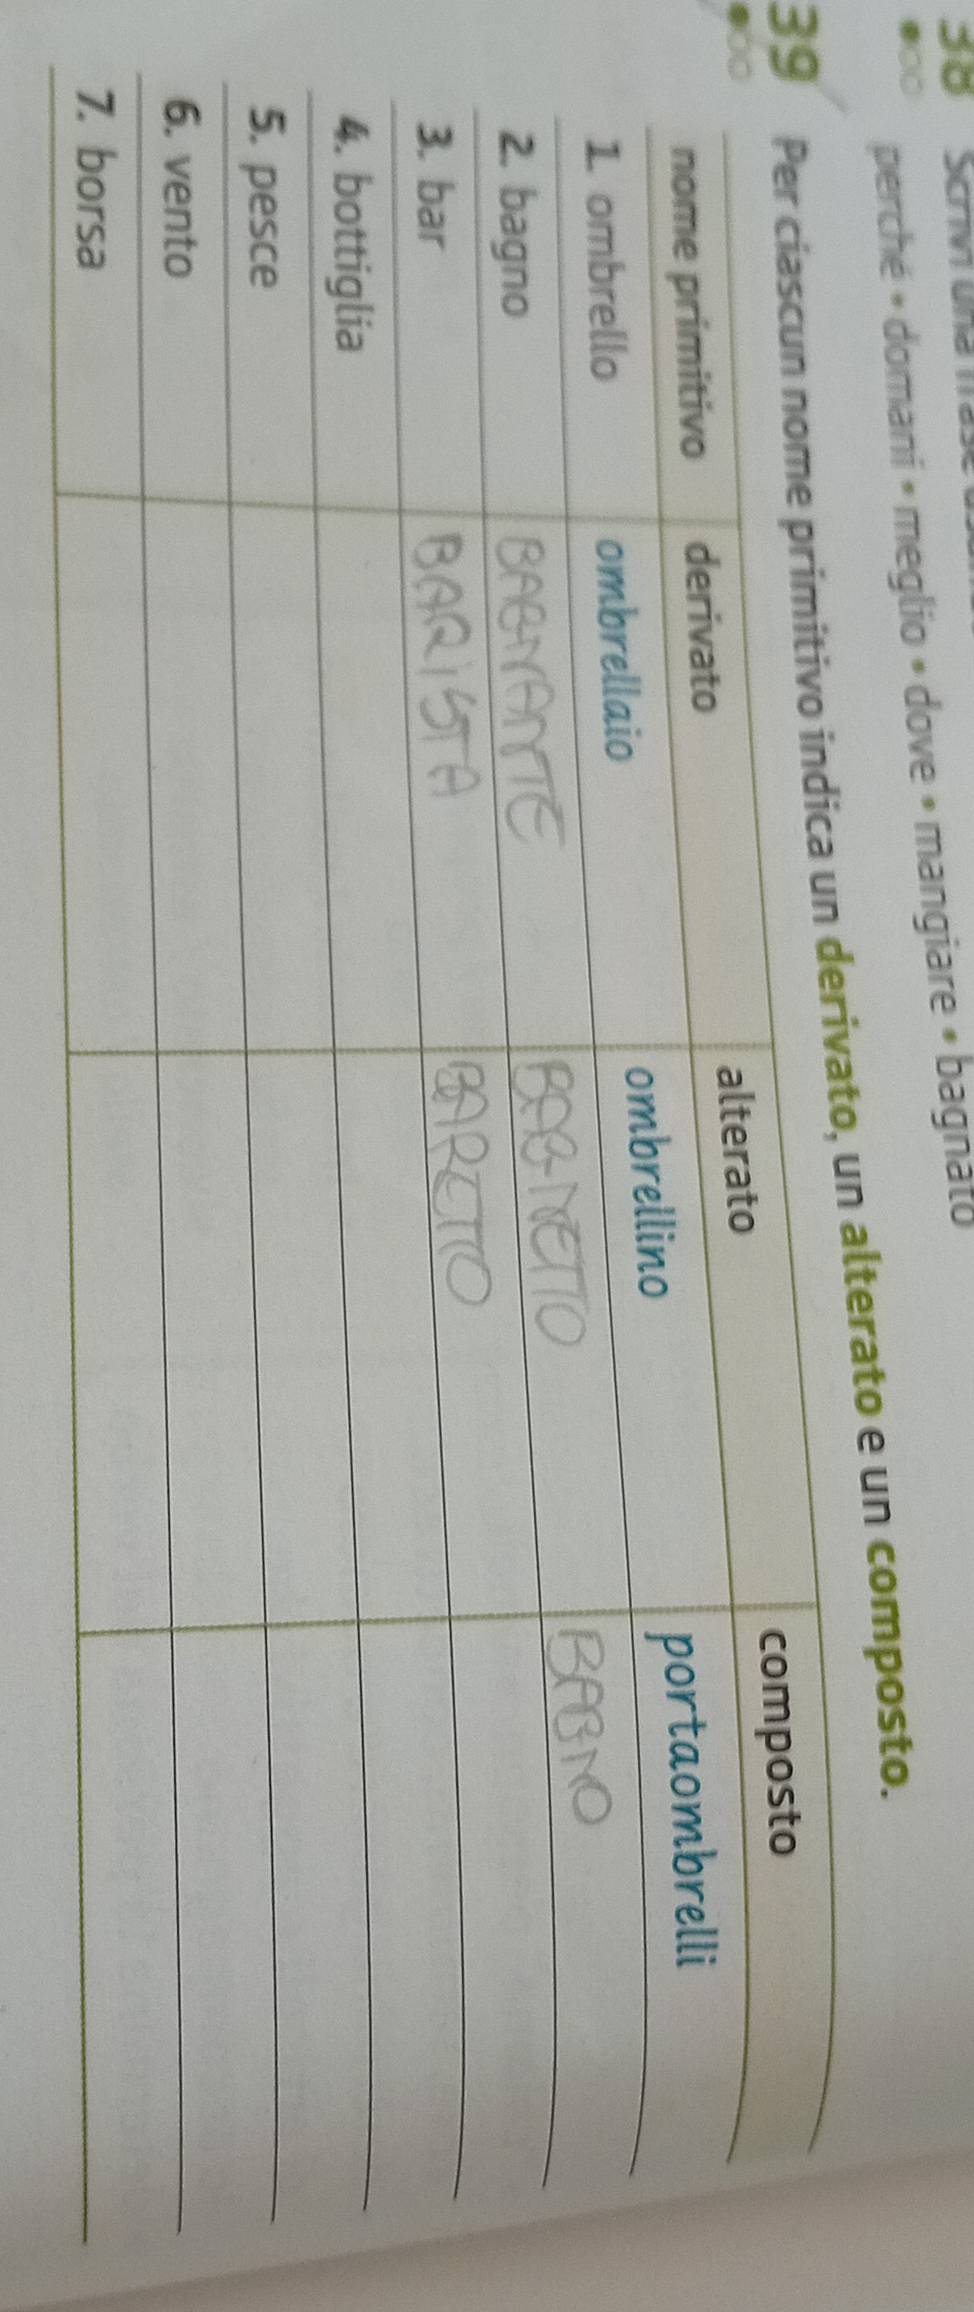 38 Scrivi una frase
perché • domani • meglio • dove • mangiare • bagnato
39 Per ciascun nome primitivo indica un derivato, un alterato e un composto.
nome primitivo derivato alterato composto
1. ombrello ombrellaio ombrellino portaombrelli
2. bagno BAGNANTE BAGNETTO BAGNO
3. bar BARISTA BARETTO
4. bottiglia
5. pesce
6. vento
7. borsa